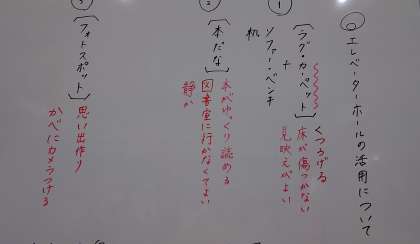 ◎エレベーターホールの活用について
①
〔ラグ・カーペット〕
くつろげる
床が傷つかない
見映えがよい
+
ソファー・ベンチ
机
②
〔本だな〕
本がゆっくり読める
図書室に行かなくてよい
静か
③
〔フォトスポット〕
思い出作り
かべにカメラつける